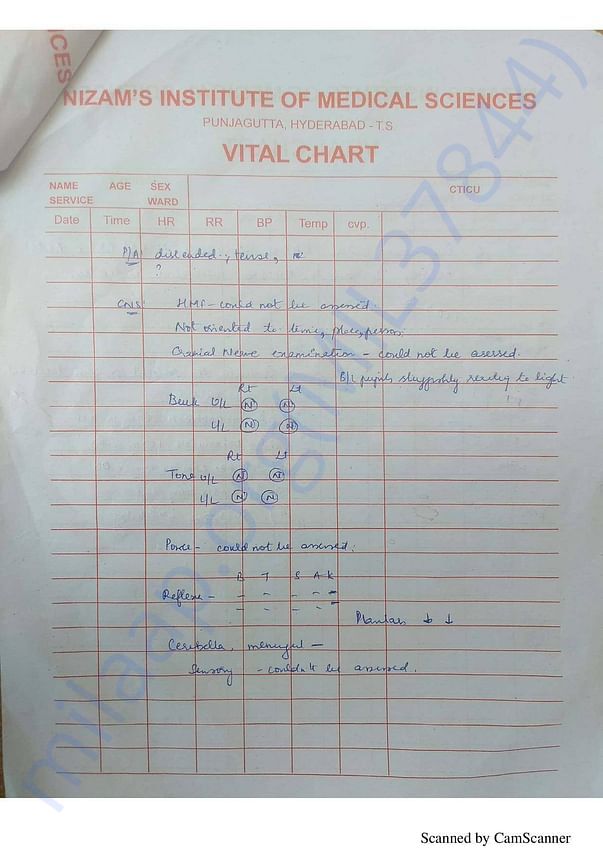 NCES
NIZAM'S INSTITUTE OF MEDICAL SCIENCES
PUNJAGUTTA, HYDERABAD - T.S
VITAL CHART
NAME AGE SEX CTICU
SERVICE WARD
Date Time HR RR BP Temp cvp.
P/A distended, tense,
?
CNS HMF - could not be assessed.
Not oriented to time, place, person.
Cranial Nerve examination - could not be assessed.
B/L pupils sluggishly reacting to light
Rt Lt
Bulk U/L N N
L/L N N
Rt Lt
Tone U/L N N
L/L N N
Power - could not be assessed.
B T S A K
Reflexes - - - - - -
- - - - -
Plantar ↓ ↓
Cerebella, meningeal -
Sensory - couldn't be assessed.
milaap.org(MIL37844)
Scanned by CamScanner